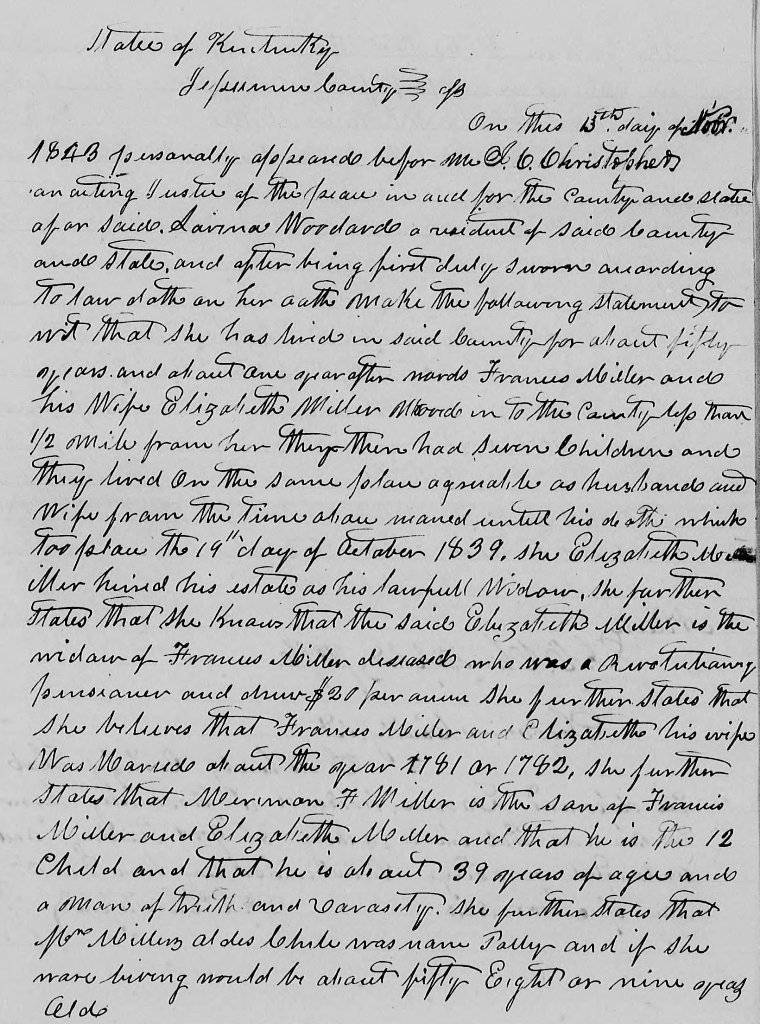 State of Kentucky
Jessamine County ss
On this 15th day of Novr.
1843 personally appeared befor me J. C. Christopher
an acting Justice of the peace in and for the County and state
afor said. Lavina Woodard a resident of said County
and state, and after being first duly sworn according
to law doth on her oath make the following statement to
wit that she has lived in said County for about fifty
years. and about one year after wards Francis Miller and
his Wife Elizabeth Miller Moved in to the County less than
1/2 mile from her they then had seven Children and
they lived on the same place agreeable as husband and
Wife from the time above named until his death which
too place the 19th day of October 1839. she Elizabeth Mi
iller his estate as his lawfull Widow, she further
States that she Knows that the said Elizabeth Miller is the
widow of Francis Miller deseased who was a Revolutionary
pensioner and drew $20 per annum she further states that
she believes that Francis Miller and Elizabeth his wife
Was Married about the year 1781 or 1782, she further
States that Merimon F Miller is the son of Francis
Miller and Elizabeth Miller and that he is the 12
Child and that he is about 39 years of agee and
a man of truth and varasety. she further states that
Mrs Millers aldes Chile was name Polly and if she
ware living would be about fifty Eight or nine years
Old